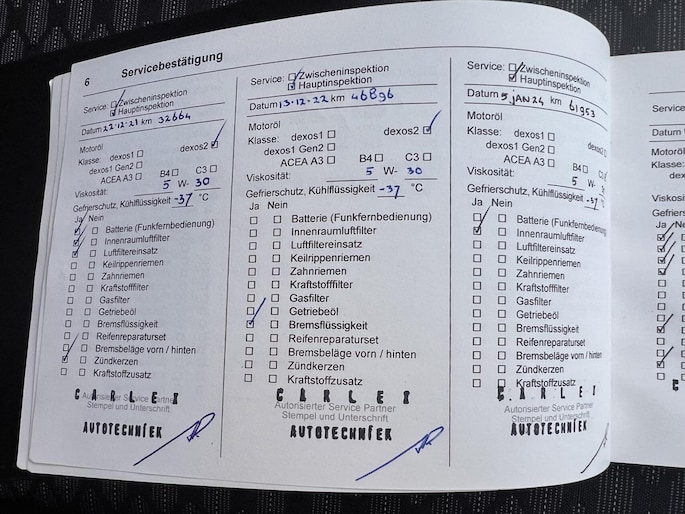 6 Servicebestätigung
Service: Zwischeninspektion
Hauptinspektion
Datum 22·12·21 km 32664
Motoröl
Klasse: dexos1 dexos2
dexos1 Gen2
ACEA A3 B4 C3
Viskosität: 5 W- 30
Gefrierschutz, Kühlflüssigkeit -37 °C
Ja Nein
Batterie (Funkfernbedienung)
Innenraumluftfilter
Luftfiltereinsatz
Keilrippenriemen
Zahnriemen
Kraftstofffilter
Gasfilter
Getriebeöl
Bremsflüssigkeit
Reifenreparaturset
Bremsbeläge vorn / hinten
Zündkerzen
Kraftstoffzusatz
CARLEX
Autorisierter Service Partner
Stempel und Unterschrift
AUTOTECHNIEK
Service: Zwischeninspektion
Hauptinspektion
Datum 13·12·22 km 46896
Motoröl
Klasse: dexos1 dexos2
dexos1 Gen2
ACEA A3 B4 C3
Viskosität: 5 W- 30
Gefrierschutz, Kühlflüssigkeit -37 °C
Ja Nein
Batterie (Funkfernbedienung)
Innenraumluftfilter
Luftfiltereinsatz
Keilrippenriemen
Zahnriemen
Kraftstofffilter
Gasfilter
Getriebeöl
Bremsflüssigkeit
Reifenreparaturset
Bremsbeläge vorn / hinten
Zündkerzen
Kraftstoffzusatz
CARLEX
Autorisierter Service Partner
Stempel und Unterschrift
AUTOTECHNIEK
Service: Zwischeninspektion
Hauptinspektion
Datum 5 JAN 24 km 61953
Motoröl
Klasse: dexos1
dexos1 Gen2
ACEA A3 B4
Viskosität: 5 W-
Gefrierschutz, Kühlflüssigkeit -37
Ja Nein
Batterie (Funkfernbedienung)
Innenraumluftfilter
Luftfiltereinsatz
Keilrippenriemen
Zahnriemen
Kraftstofffilter
Gasfilter
Getriebeöl
Bremsflüssigkeit
Reifenreparaturset
Bremsbeläge vorn / hinten
Zündkerzen
Kraftstoffzusatz
CARLEX
Autorisierter Service Partner
Stempel und Unterschrift
AUTOTECHNIEK
Service:
Datum
Motoröl
Klasse:
Viskosität:
Ja